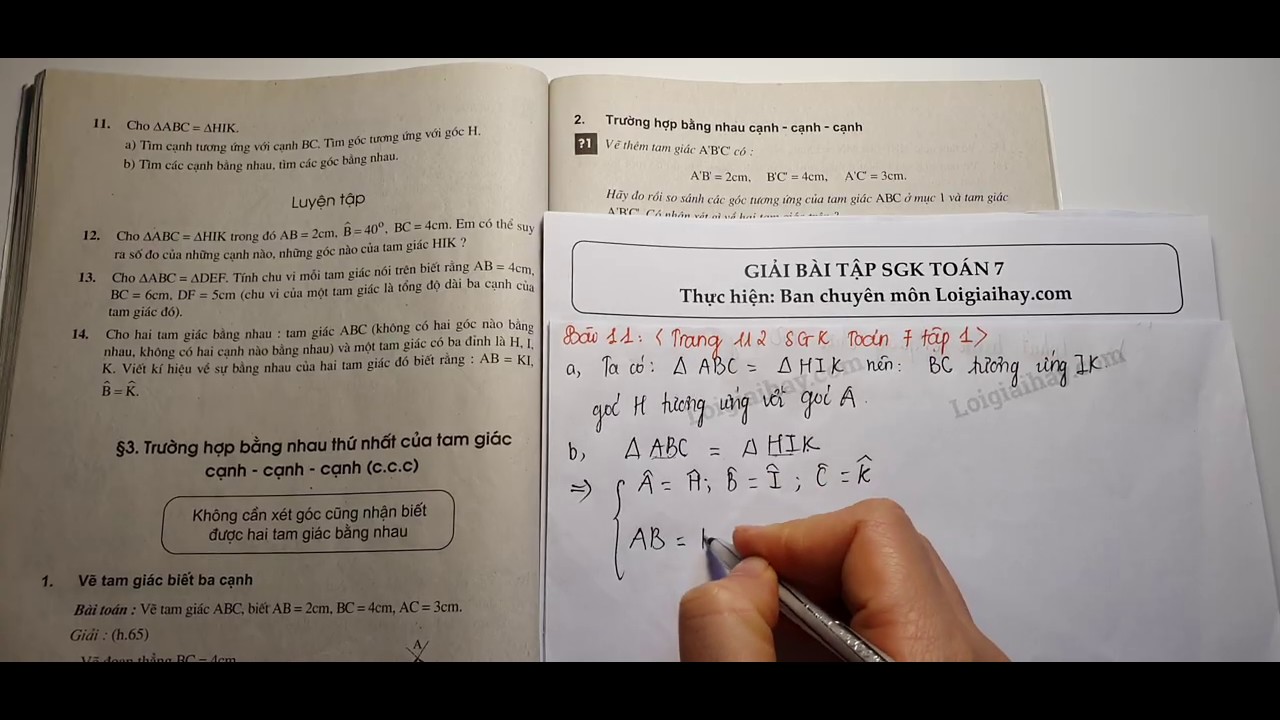 11. Cho ΔABC = ΔHIK.
a) Tìm cạnh tương ứng với cạnh BC. Tìm góc tương ứng với góc H.
b) Tìm các cạnh bằng nhau, tìm các góc bằng nhau.
Luyện tập
12. Cho ΔABC = ΔHIK trong đó AB = 2cm, B̂ = 40°, BC = 4cm. Em có thể suy
ra số đo của những cạnh nào, những góc nào của tam giác HIK ?
13. Cho ΔABC = ΔDEF. Tính chu vi mỗi tam giác nói trên biết rằng AB = 4cm,
BC = 6cm, DF = 5cm (chu vi của một tam giác là tổng độ dài ba cạnh của
tam giác đó).
14. Cho hai tam giác bằng nhau : tam giác ABC (không có hai góc nào bằng
nhau, không có hai cạnh nào bằng nhau) và một tam giác có ba đỉnh là H, I,
K. Viết kí hiệu về sự bằng nhau của hai tam giác đó biết rằng : AB = KI,
B̂ = K̂.
§3. Trường hợp bằng nhau thứ nhất của tam giác
cạnh - cạnh - cạnh (c.c.c)
Không cần xét góc cũng nhận biết
được hai tam giác bằng nhau
1. Vẽ tam giác biết ba cạnh
Bài toán : Vẽ tam giác ABC, biết AB = 2cm, BC = 4cm, AC = 3cm.
Giải : (h.65)
Vẽ đoạn thẳng BC = 4cm
A
2. Trường hợp bằng nhau cạnh - cạnh - cạnh
?1 Vẽ thêm tam giác A'B'C' có :
A'B' = 2cm, B'C' = 4cm, A'C' = 3cm.
Hãy đo rồi so sánh các góc tương ứng của tam giác ABC ở mục 1 và tam giác
A'B'C'. Có nhận xét gì về hai tam giác trên ?
GIẢI BÀI TẬP SGK TOÁN 7
Thực hiện: Ban chuyên môn Loigiaihay.com
Bài 11: < Trang 112 SGK Toán 7 tập 1>
a, Ta có: Δ ABC = Δ HIK nên: BC tương ứng IK.
góc H tương ứng với góc A.
b, Δ ABC = Δ HIK
=> Â = Ĥ; B̂ = Î ; Ĉ = K̂
AB =
Loigiaihay.com
Loigiaihay.com